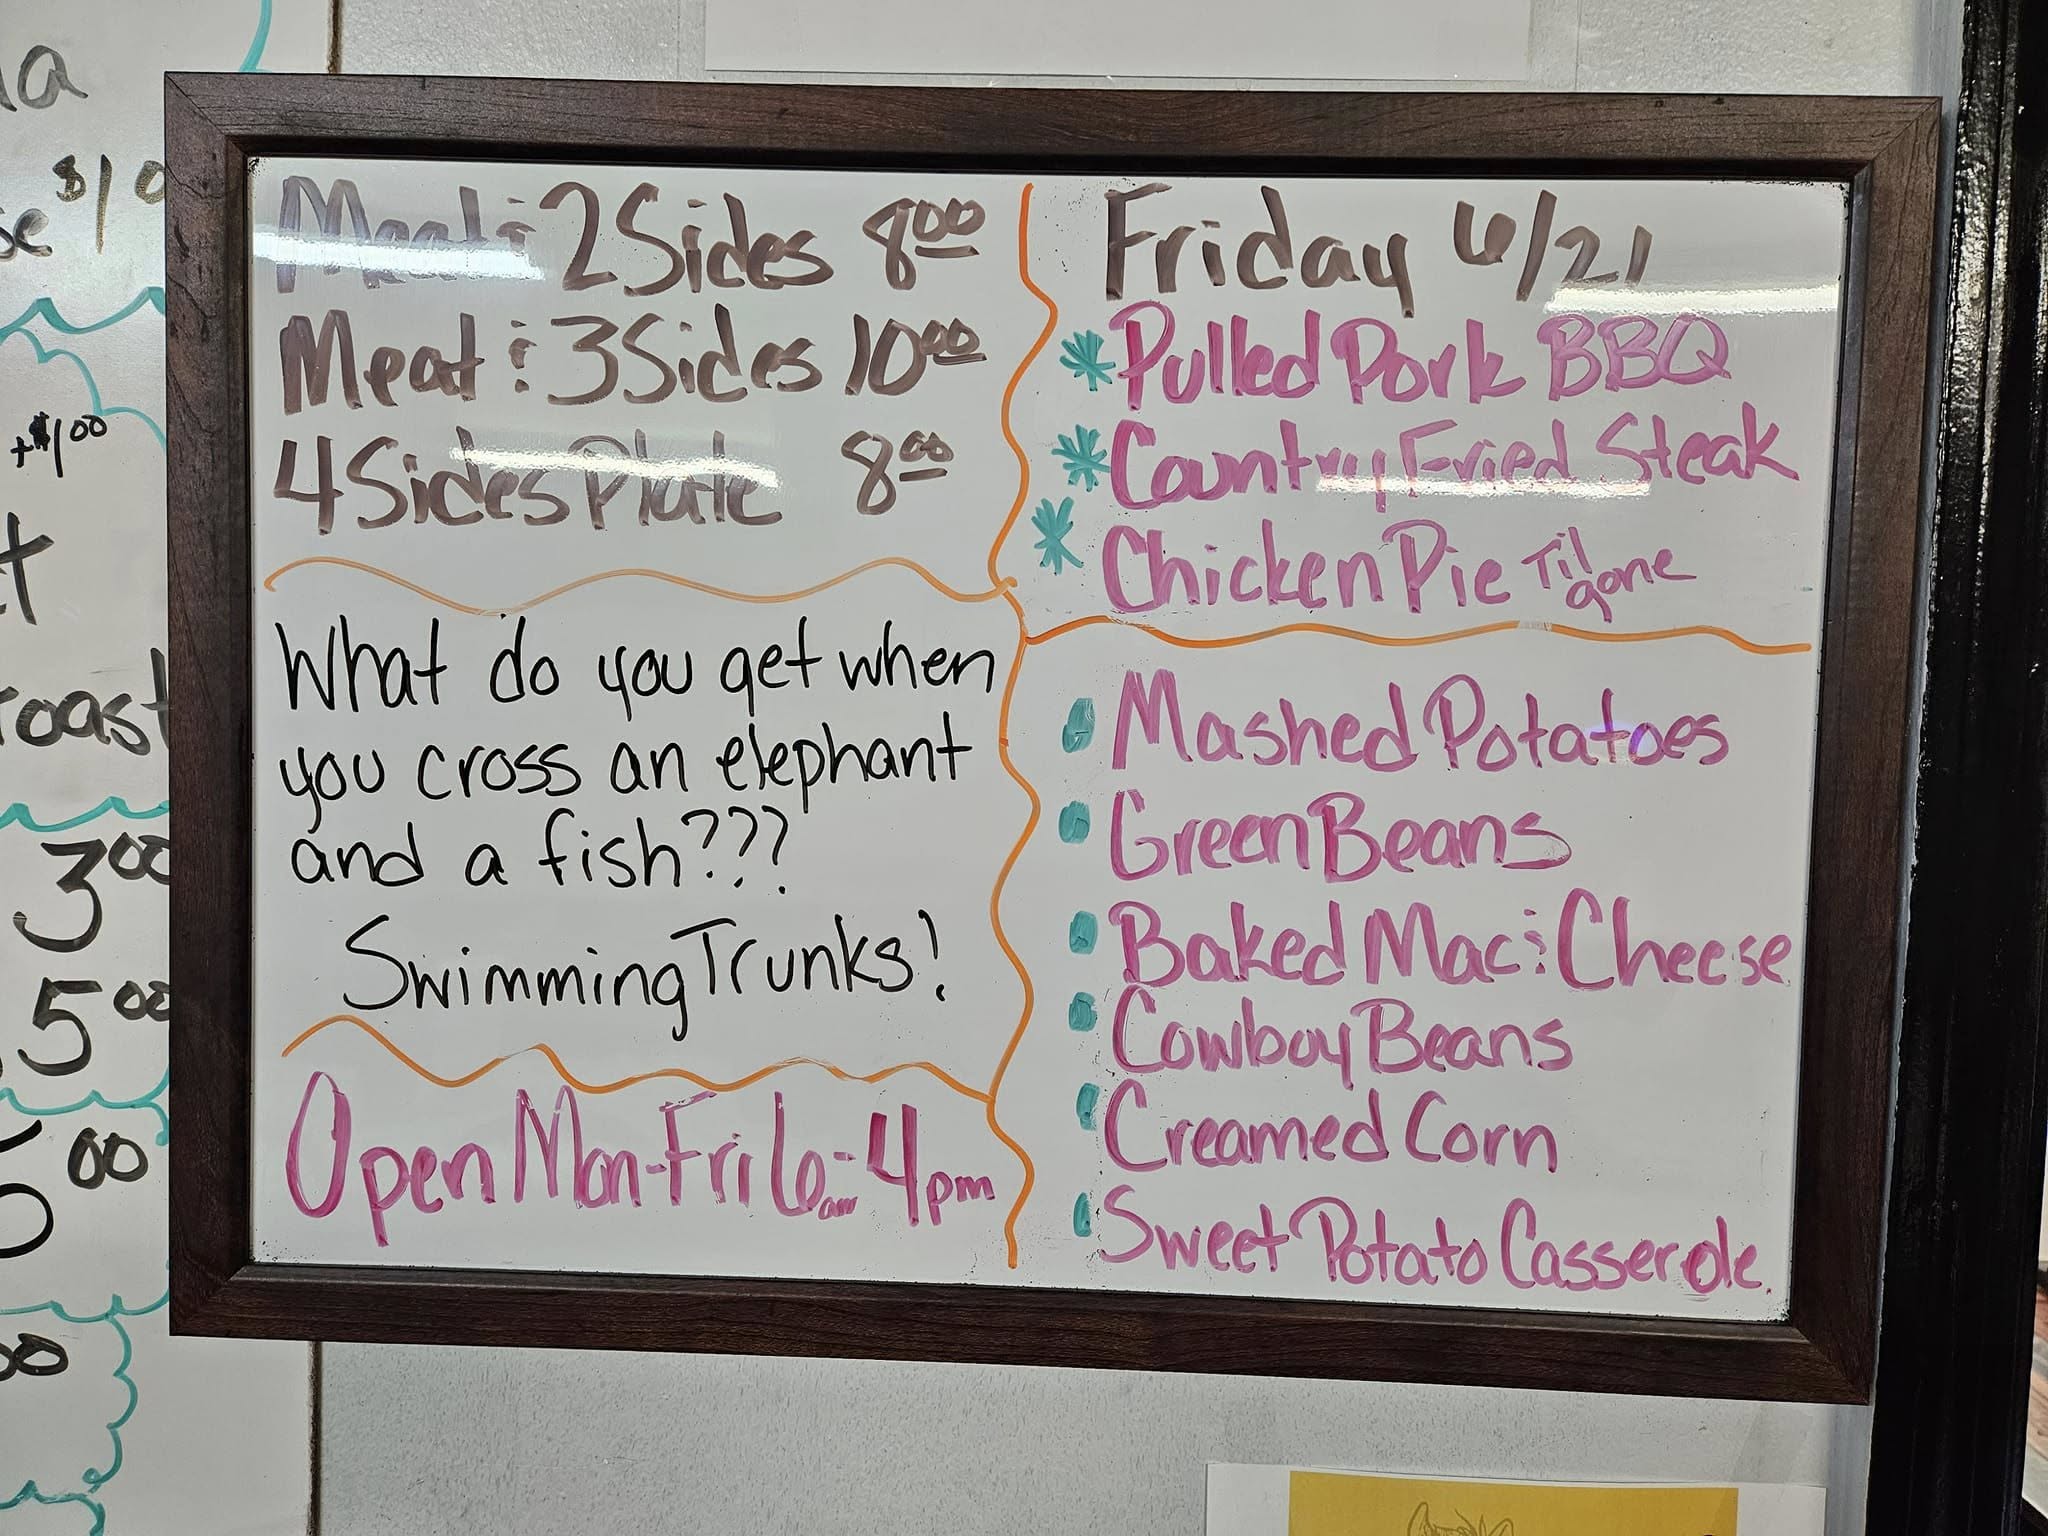 la
se $10
+$1.00
t
roast
3.00
5.00
00
00
Meat & 2 Sides 8.00
Meat & 3 Sides 10.00
4 Sides Plate 8.00
What do you get when
you cross an elephant
and a fish???
Swimming Trunks!
Open Mon-Fri 6am-4pm
Friday 6/21
* Pulled Pork BBQ
* Country Fried Steak
* Chicken Pie Til gone
• Mashed Potatoes
• Green Beans
• Baked Mac & Cheese
• Cowboy Beans
• Creamed Corn
• Sweet Potato Casserole